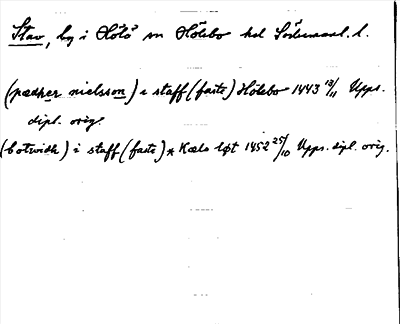 Stav, by i Hölö sn Hölebo hd Södermanl. l.
(pædher nielsson) i staff (faste) Hölebo 1443 13/11 Upps.
dipl. orig.
(botwidh) i staff (faste) * Kæla löt 1452 25/10 Upps. dipl. orig.